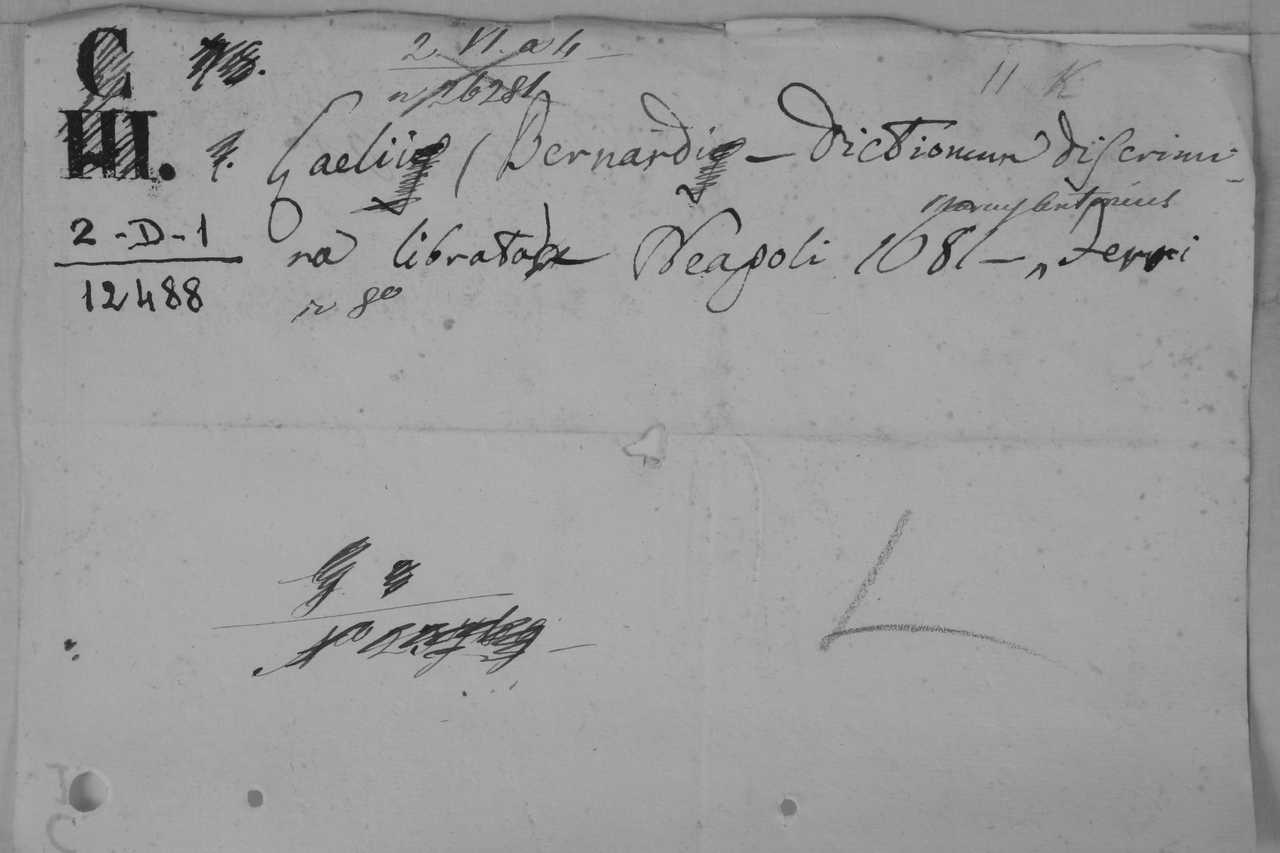 C
III.
2-D-1
12488
2 VI. a 4
n, 26281
11 K
Caelii / Bernardi – Dictionum discrimi-
na librata Neapoli 1681 – Ferri
in 8º
L
I
C